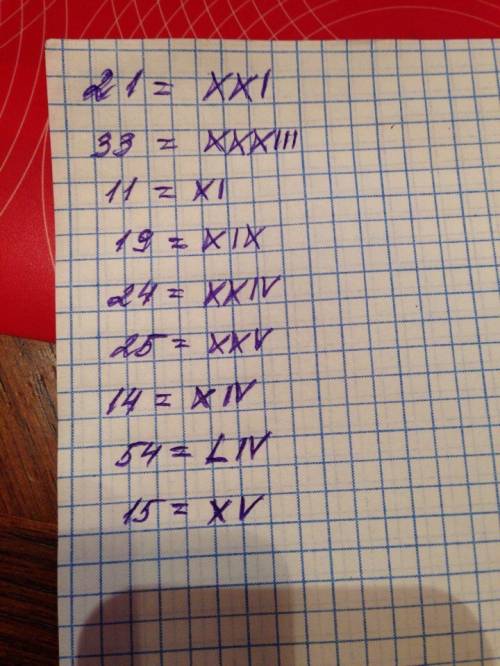 21 = XXI
33 = XXXIII
11 = XI
19 = XIX
24 = XXIV
25 = XXV
14 = XIV
54 = LIV
15 = XV